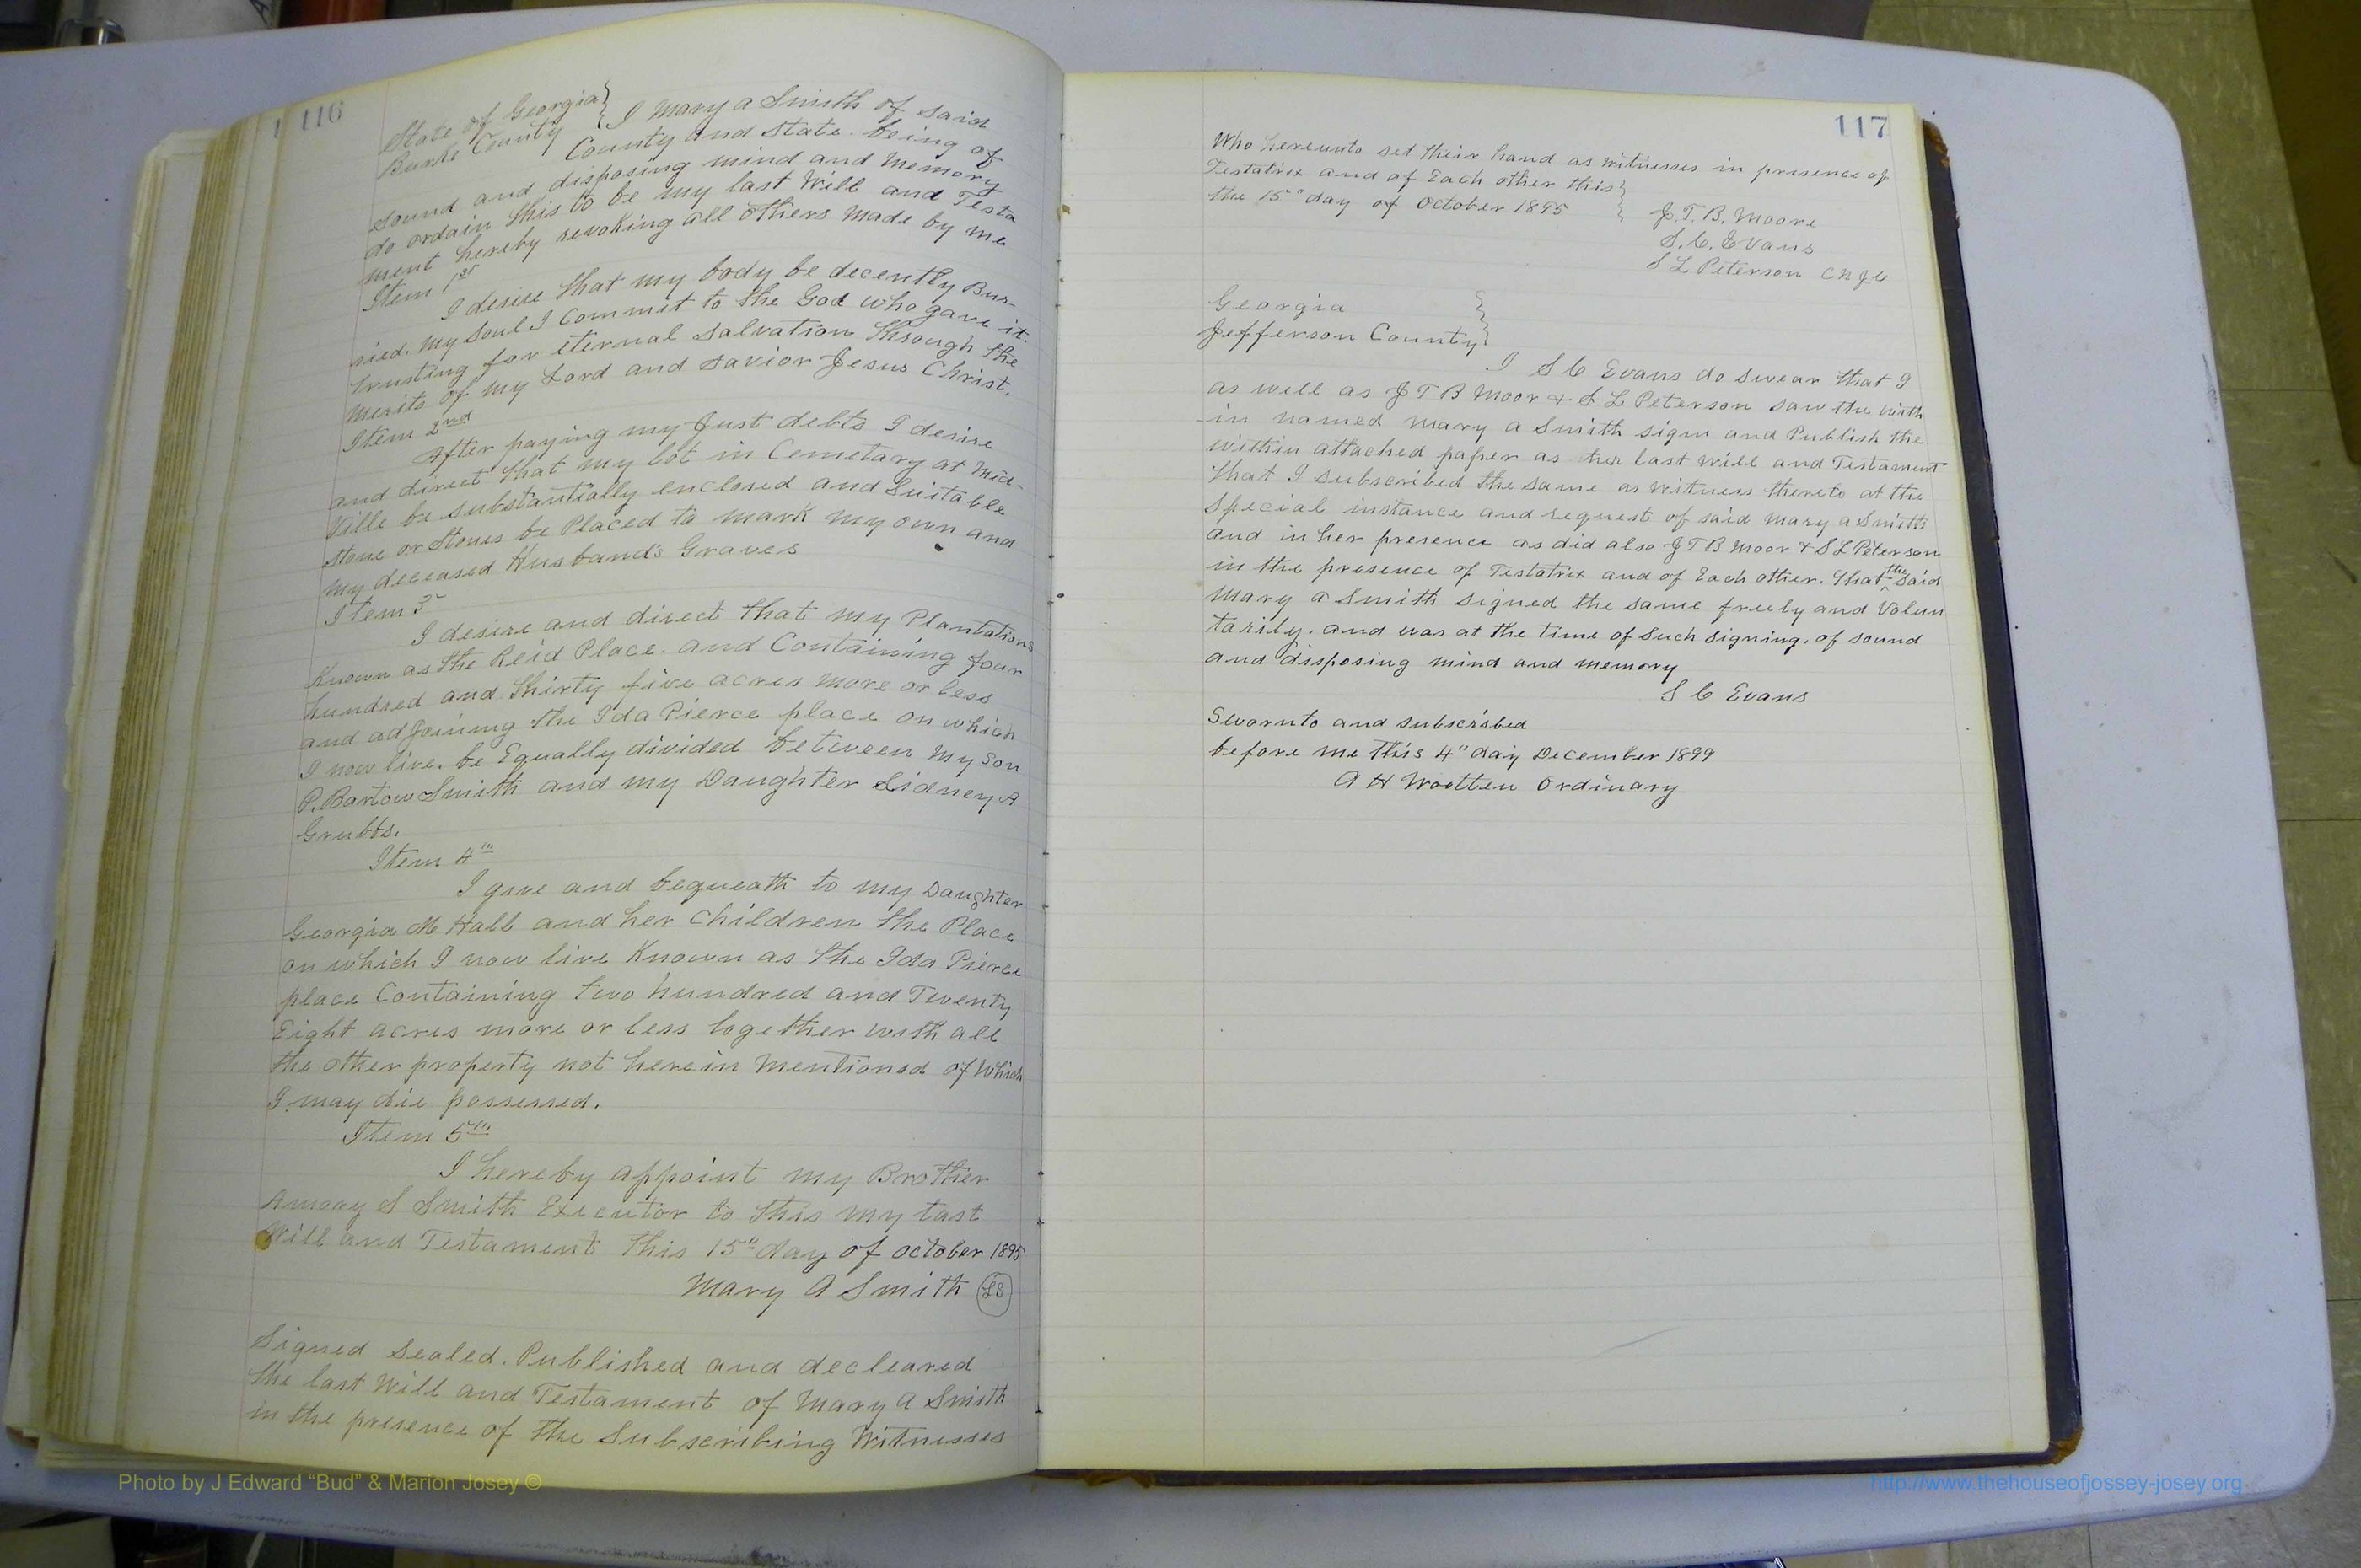 116
State of Georgia } I Mary A Smith of said
Burke County } County and State being of
sound and disposing mind and memory
do ordain this to be my last Will and Testa
ment hereby revoking all others made by me
Item 1st
I desire that my body be decently Bur-
ried. My soul I commit to the God who gave it.
trusting for iternal salvation through the
merits of my Lord and Savior Jesus Christ.
Item 2nd
After paying my Just debts I desire
and direct that my lot in Cemetary at Mid-
ville be substantially enclosed and Suitable
stone or Stones be Placed to mark my own and
my deceased Husband's Graves
Item 3
I desire and direct that my Plantations
Known as the Reid Place. and Containing four
hundred and thirty five acres more or less
and adjoining the Ida Pierce place on which
I now live. be Equally divided between my Son
P. Bartow Smith and my Daughter Sidney A
Grubbs.
Item 4th
I give and bequeath to my Daughter
Georgia M Hall and her children the Place
on which I now live Known as the Ida Pierce
place Containing two hundred and Twenty
Eight acres more or less together with all
the other property not herein mentioned of which
I may die possessed.
Item 5th
I hereby appoint my Brother
Amory S Smith Executor to this my last
Will and Testament this 15" day of October 1895
Mary A Smith LS
Signed Sealed. Published and decleared
the last Will and Testament of Mary A Smith
in the presence of the Subscribing Witnesses
117
Who hereunto set their hand as witnesses in presence of
Testatrix and of Each other this }
the 15" day of October 1895 } J. T. B. Moore
S. C. Evans
S L Peterson
Georgia }
Jefferson County }
I S C Evans do swear that I
as well as J T B Moor & S L Peterson saw the with
in named Mary A Smith sign and Publish the
within attached paper as her last will and Testament
that I subscribed the same as witness thereto at the
special instance and request of said Mary A Smith
and in her presence as did also J T B Moor & S L Peterson
in the presence of Testatrix and of Each other. that the said
Mary A Smith signed the same freely and Volun
tarily. and was at the time of such signing. of sound
and disposing mind and memory
S C Evans
Swornto and subscribed
before me this 4" day December 1899
A H Wootten Ordinary
Photo by J Edward “Bud” & Marion Josey ©
http://www.thehouseofjossey-josey.org